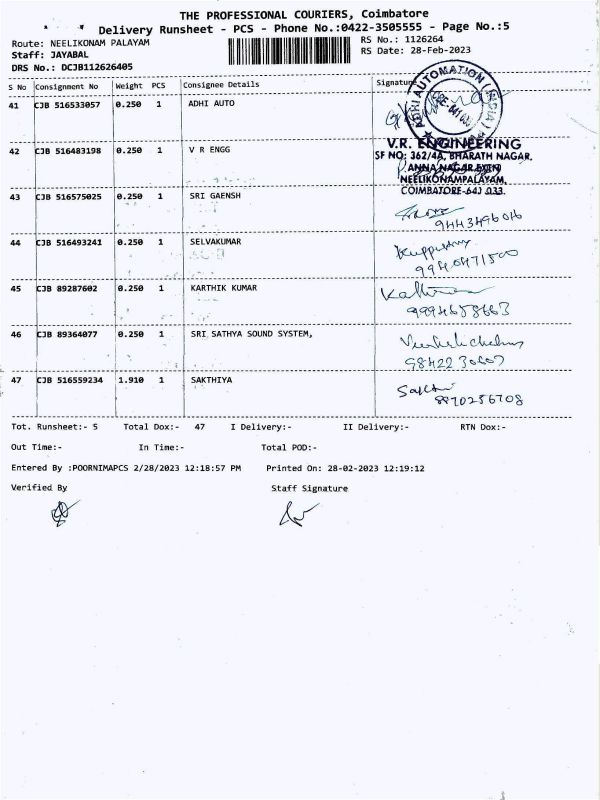 THE PROFESSIONAL COURIERS, Coimbatore
Delivery Runsheet - PCS - Phone No.:0422-3505555 - Page No.:5
Route: NEELIKONAM PALAYAM
RS No.: 1126264
Staff: JAYABAL
RS Date: 28-Feb-2023
DRS No.: DCJB112626405
S No Consignment No Weight PCS Consignee Details Signature
41 CJB 516533057 0.250 1 ADHI AUTO
ADHI AUTOMATION (INDIA)
CBE-641 033
42 CJB 516483198 0.250 1 V R ENGG
V.R. ENGINEERING
SF NO: 362/4A, BHARATH NAGAR,
ANNA NAGAR EXTN
NEELIKONAMPALAYAM,
COIMBATORE-641 033.
43 CJB 516575025 0.250 1 SRI GAENSH
9443496016
44 CJB 516493241 0.250 1 SELVAKUMAR
Kuppusamy
45 CJB 89287602 0.250 1 KARTHIK KUMAR
9994658663
46 CJB 89364077 0.250 1 SRI SATHYA SOUND SYSTEM,
47 CJB 516559234 1.910 1 SAKTHIYA
Sakthi
Tot. Runsheet:- 5 Total Dox:- 47 I Delivery:- II Delivery:- RTN Dox:-
Out Time:- In Time:- Total POD:-
Entered By :POORNIMAPCS 2/28/2023 12:18:57 PM Printed On: 28-02-2023 12:19:12
Verified By Staff Signature